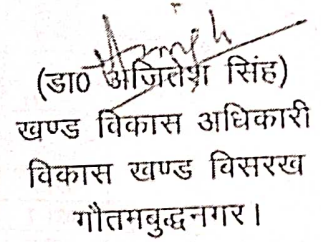 (डा0 अजितेश सिंह)
खण्ड विकास अधिकारी
विकास खण्ड विसरख
गौतमबुद्धनगर।